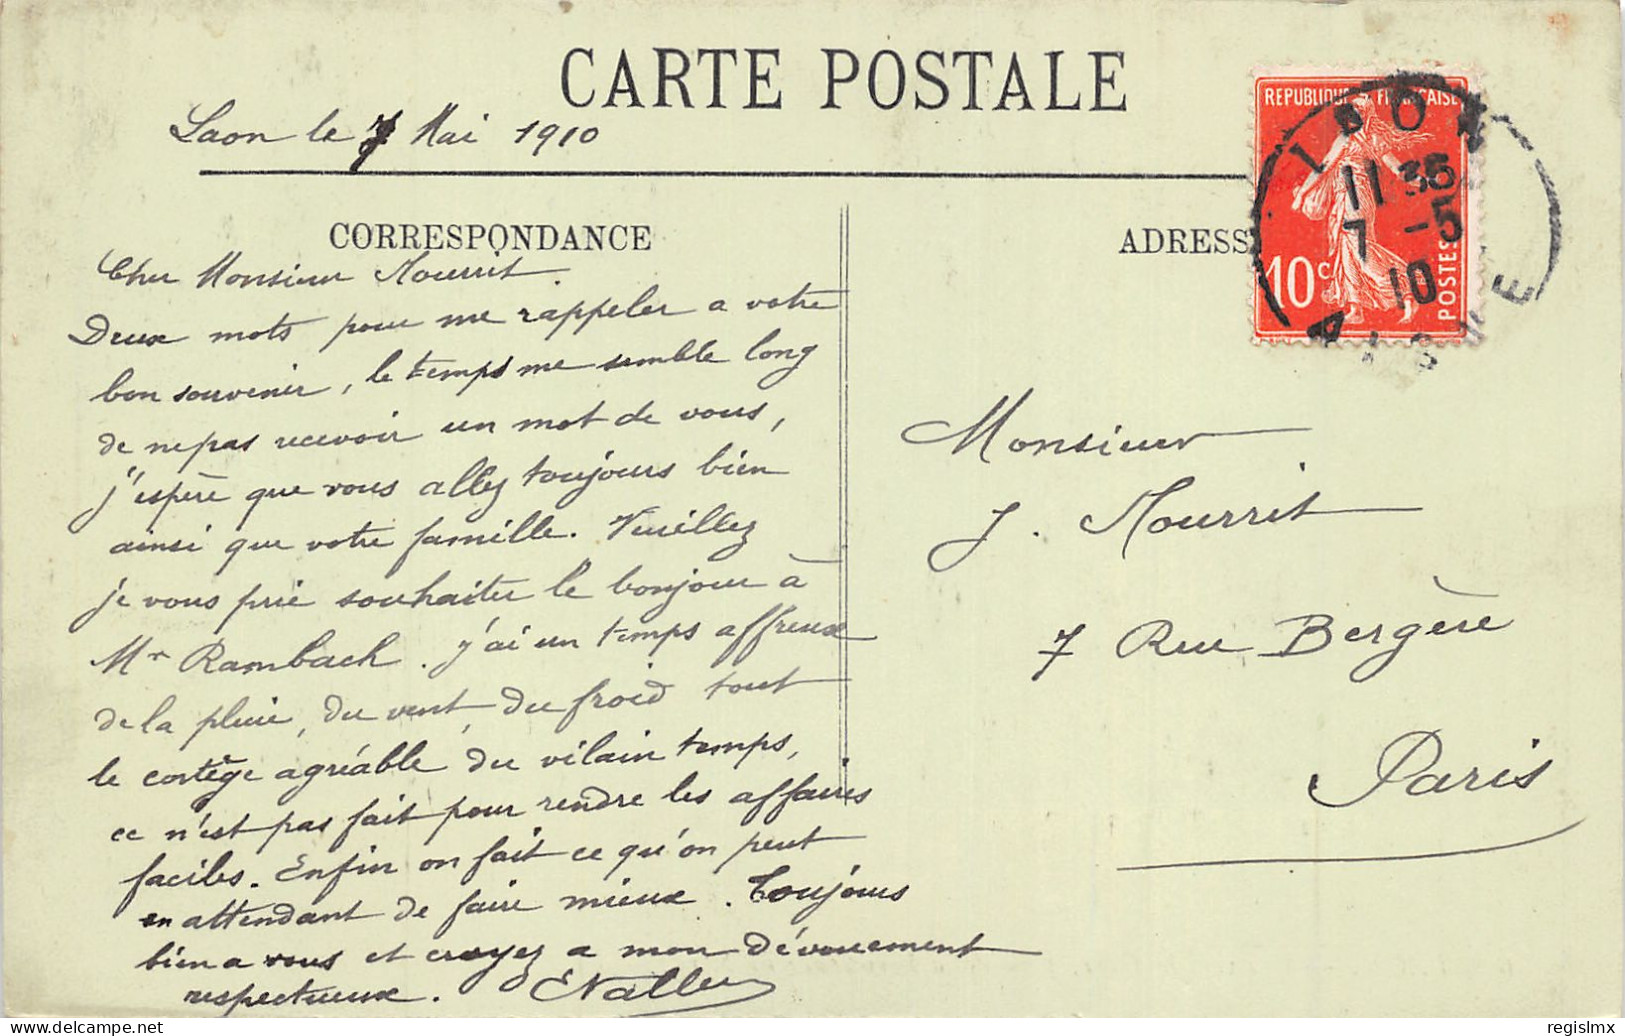 CARTE POSTALE
Laon le 7 Mai 1910
CORRESPONDANCE
Cher Monsieur Mourrit
Deux mots pour me rappeler a votre
bon souvenir, le temps me semble long
de ne pas recevoir un mot de vous,
j'espère que vous allez toujours bien
ainsi que votre famille. Veuillez
je vous prie souhaiter le bonjour à
Mr Rambach. j'ai un temps affreux
de la pluie, du vent, du froid tout
le cortège agréable du vilain temps,
ce n'est pas fait pour rendre les affaires
faciles. Enfin on fait ce qu'on peut
en attendant de faire mieux. Toujours
bien a vous et croyez a mon dévouement
respectueux.
ADRESS
REPUBLIQUE FRANÇAISE
10c
POSTES
11 35
7 -5
10
Monsieur
J. Mourrit
7 Rue Bergère
Paris
www.delcampe.net
regislmx